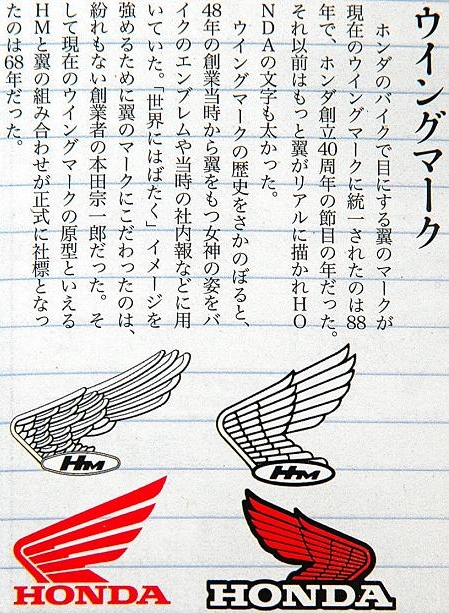 ウイングマーク
ホンダのバイクで目にする翼のマークが
現在のウイングマークに統一されたのは88
年で、ホンダ創立40周年の節目の年だった。
それ以前はもっと翼がリアルに描かれHO
NDAの文字も太かった。
ウイングマークの歴史をさかのぼると、
48年の創業当時から翼をもつ女神の姿をバ
イクのエンブレムや当時の社内報などに用
いていた。「世界にはばたく」イメージを
強めるために翼のマークにこだわったのは、
紛れもない創業者の本田宗一郎だった。そ
して現在のウイングマークの原型といえる
HMと翼の組み合わせが正式に社標となっ
たのは68年だった。
HM
HM
HONDA
HONDA